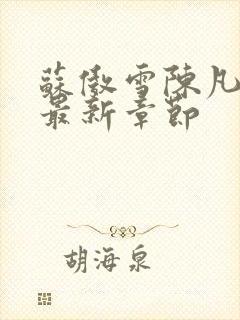 蘇傲雪陳凡
最新章節
胡海泉